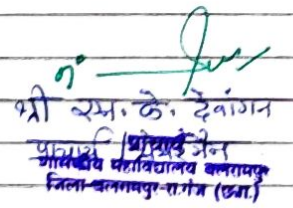 श्री एम. के. देवांगन
प्राचार्य
शासकीय महाविद्यालय बलरामपुर
जिला-बलरामपुर-रा.गंज (छ.ग.)